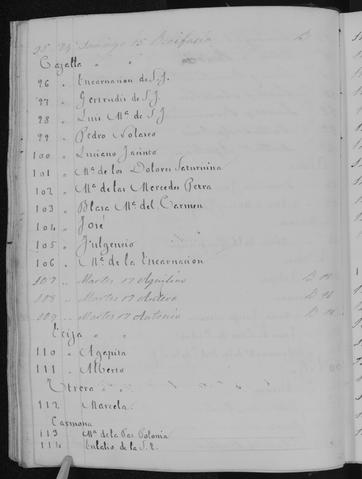 95 24 Domingo 15 Bonifacia D
Cazalla " "
96 " Encarnacion de S.J.
97 " Gertrudis de S.J.
98 " Luis Mª de S.J
99 " Pedro Nolasco
100 " Luciano Jacinto
101 " Mª de los Dolores Saturnina
102 " Mª de las Mercedes Perra
103 " Blasa Mª del Carmen
104 " José
105 " Fulgencio
106 " Mª de la Encarnacion
107 " Martes 17 Aquilino D
108 " Martes 17 D
109 " Martes 17 Antonio D
Ecija " "
110 " Agapita
111 " Alberto
Utrera " "
112 " Marcela
Carmona
113 " Mª de la Paz Polonia
114 " Eulalio de la S.